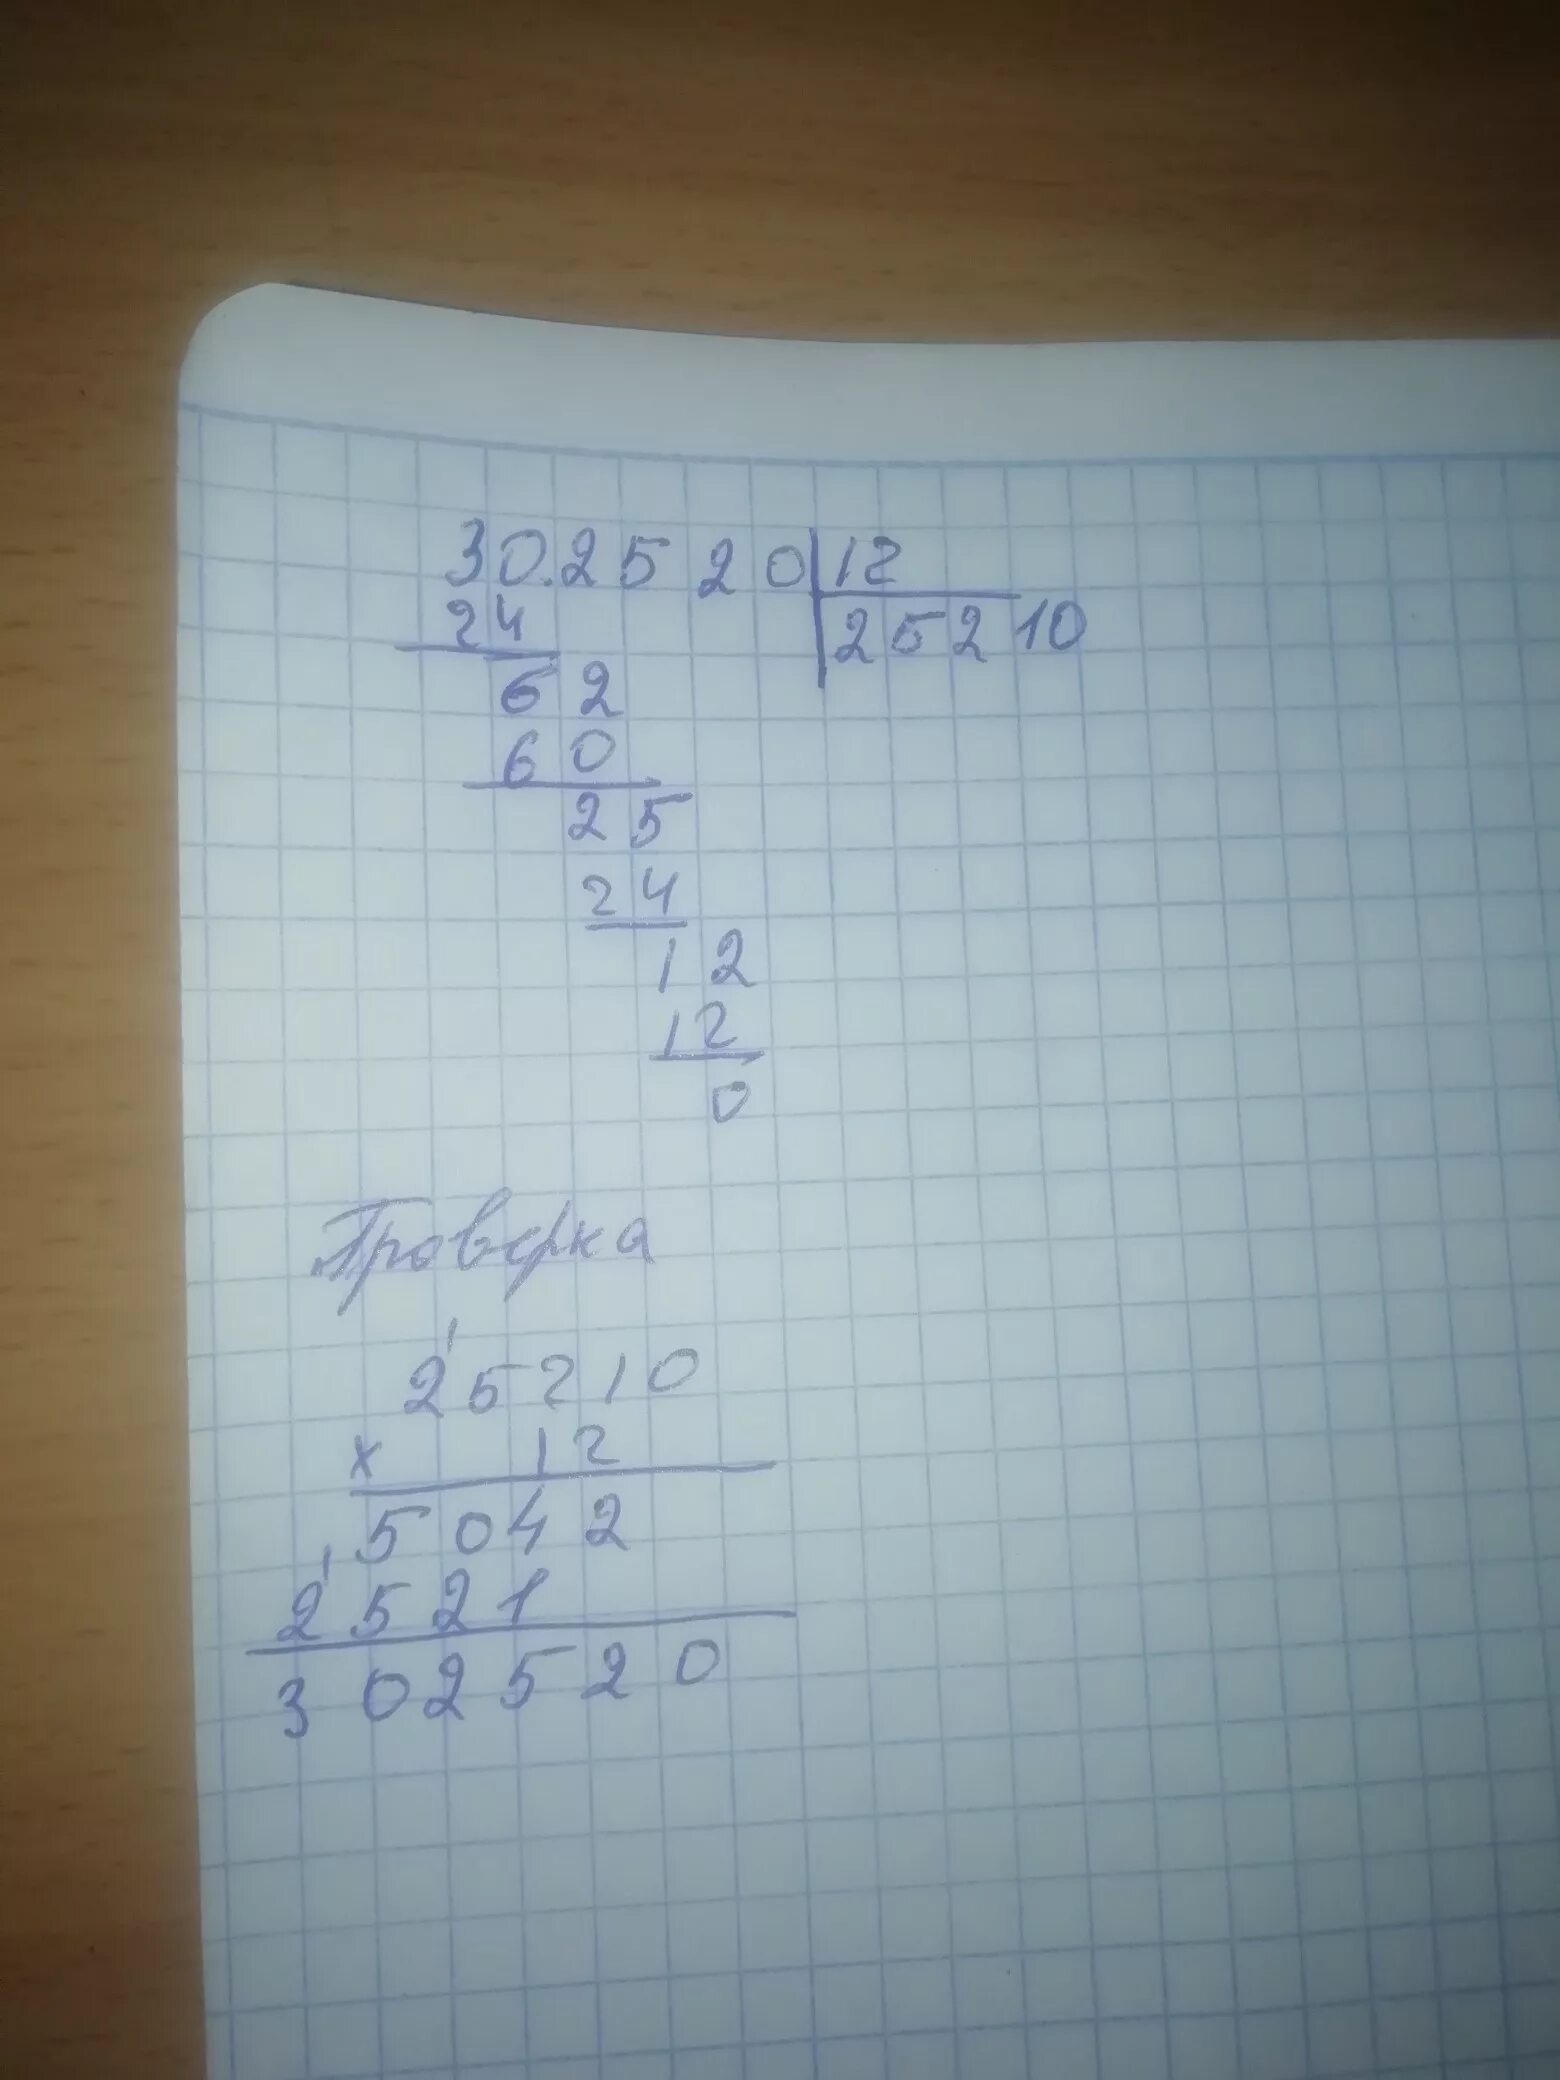 30.2520|12
24 25210
62
60
25
24
12
12
0
Проверка
1
25210
x 12
5042
1
2521
302520